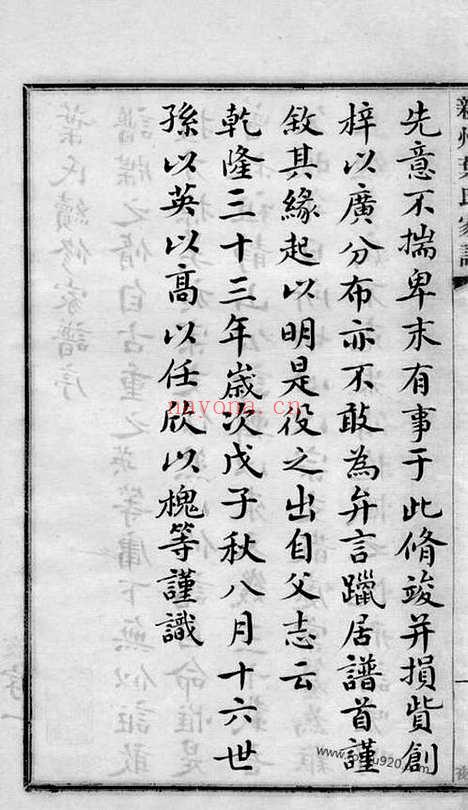 新州葉氏家譜
先意不揣卑末有事于此脩竣并損貲創
梓以廣分布亦不敢為弁言躐居譜首謹
敘其緣起以明是役之出自父志云
乾隆三十三年嵗次戊子秋八月十六世
孫以英以高以任欣以槐等謹識
nayona.cn
www.jiapu920.com